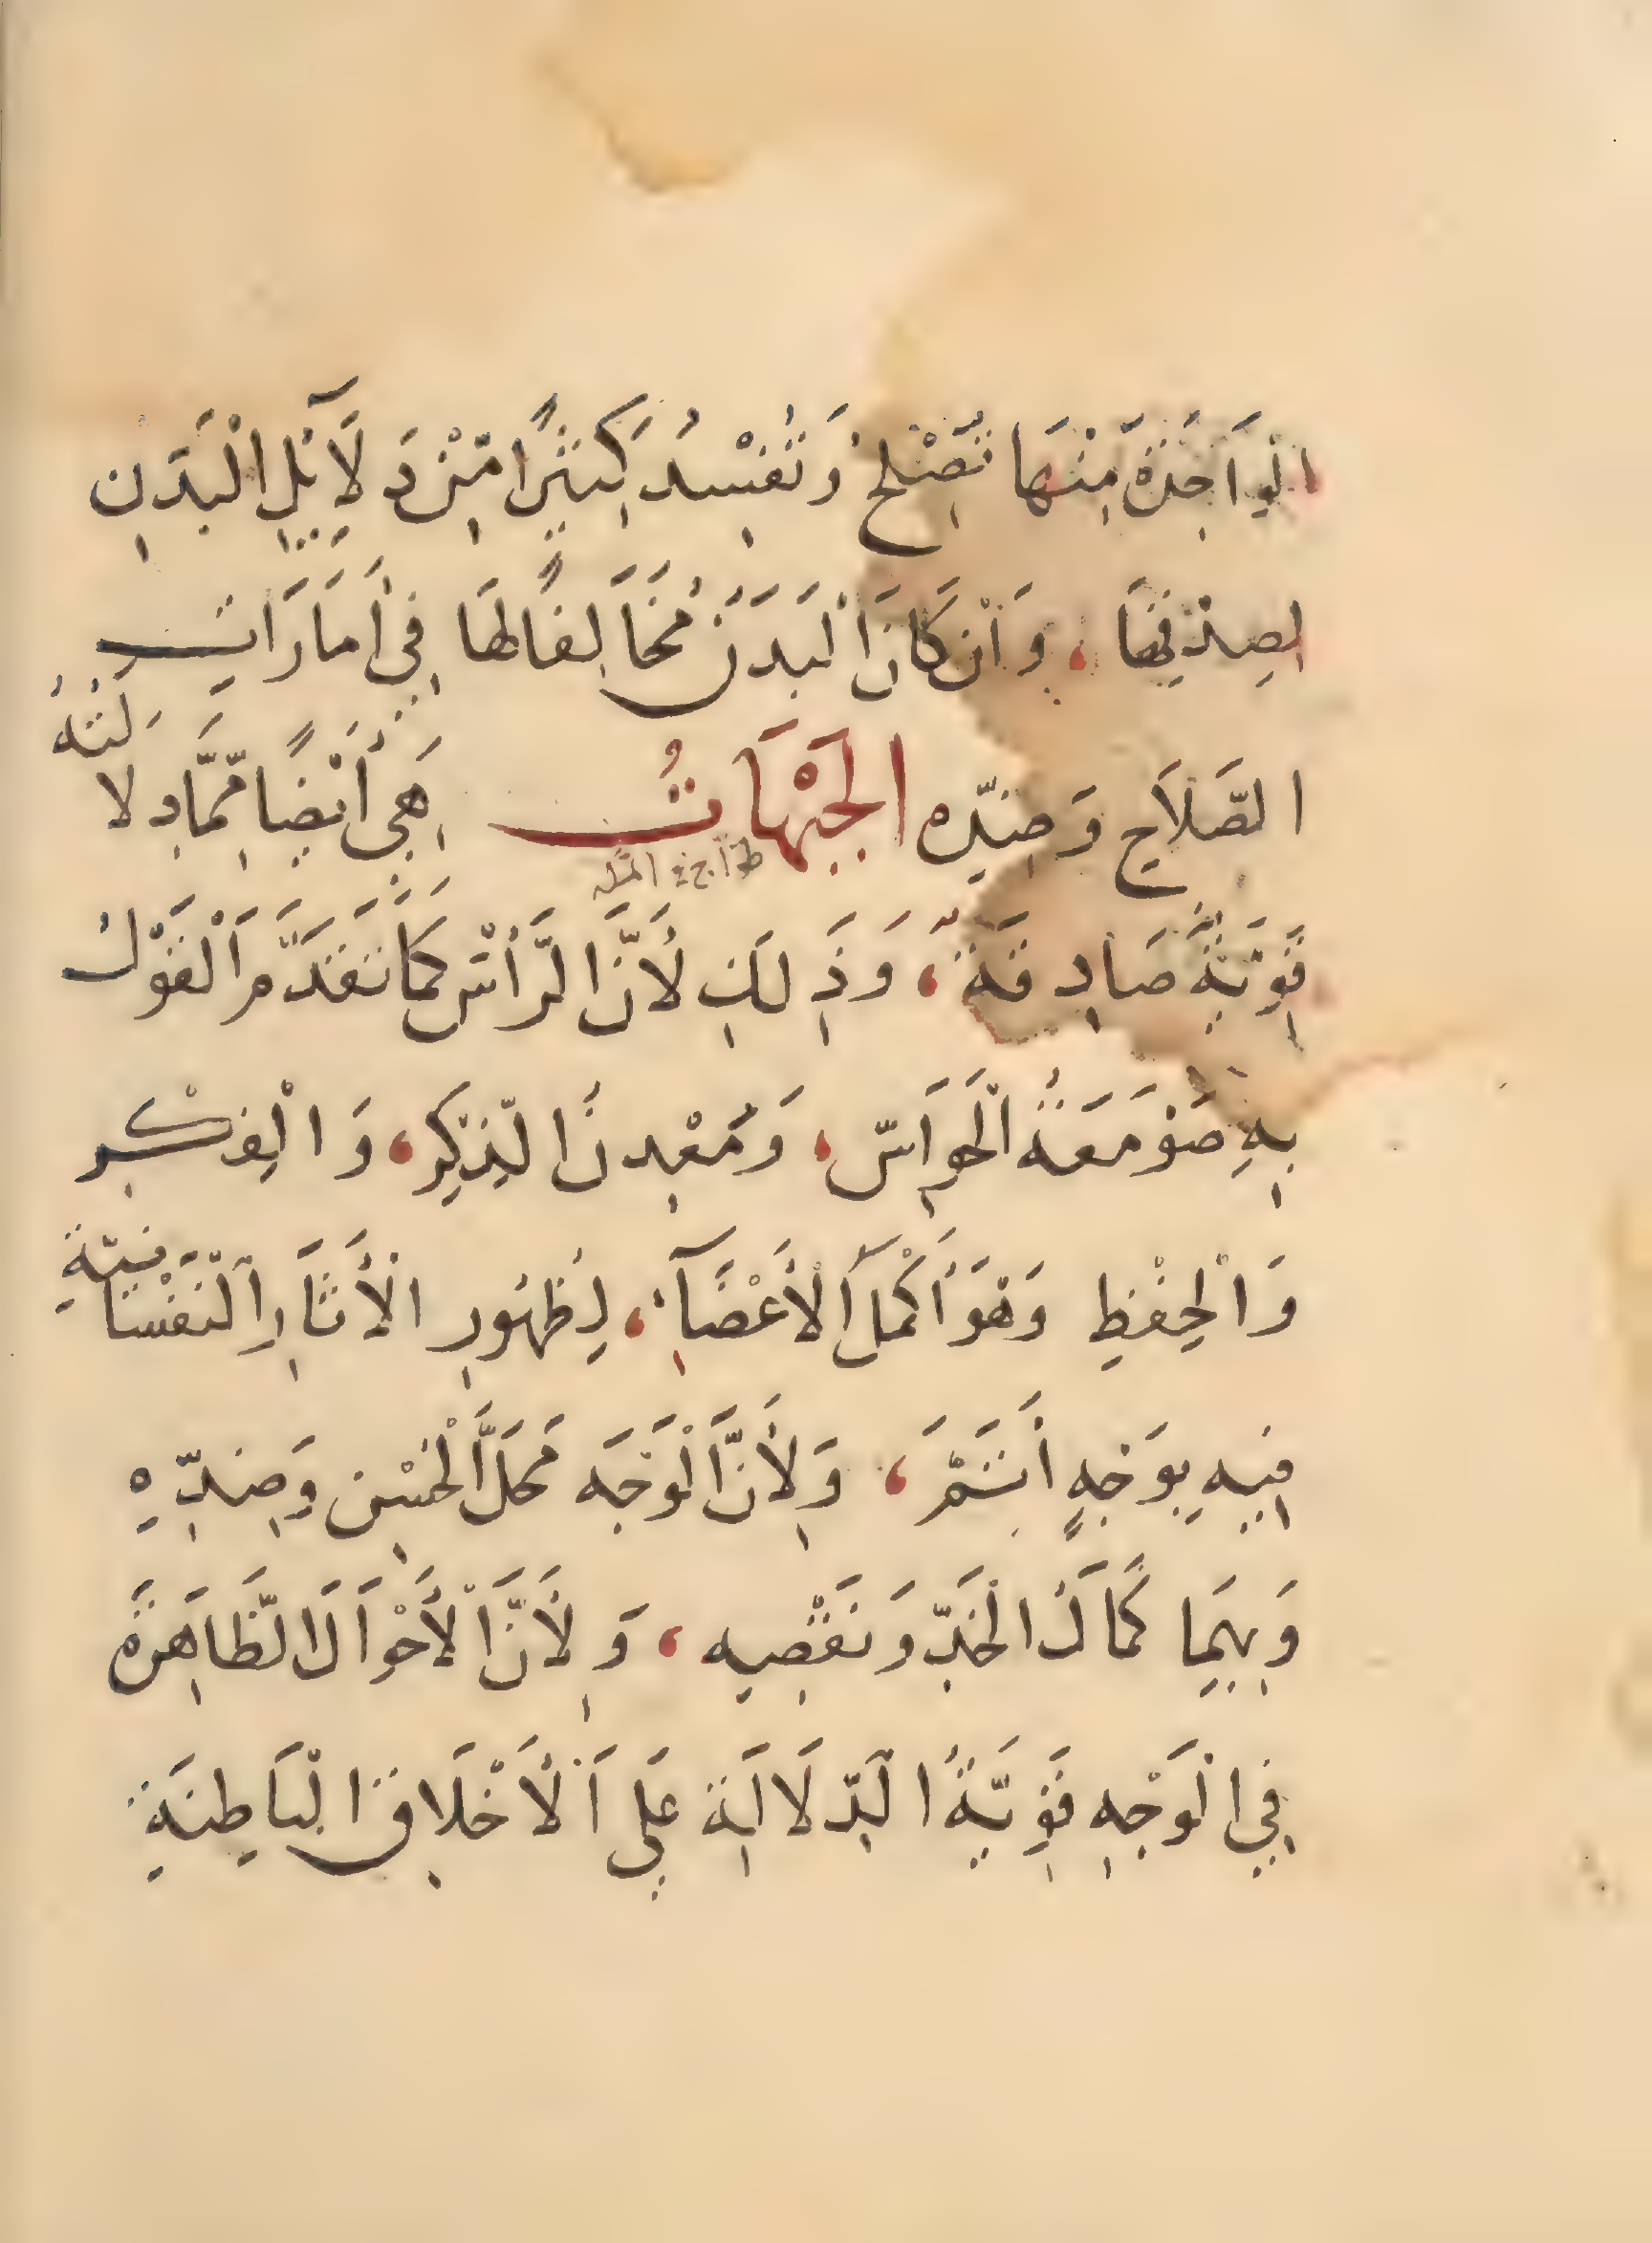 الْوَاحِدَةُ مِنْهَا تُصْلِحُ وَتُفْسِدُ كَثِيرًا مِنْ دَلَآئِلِ الْبَدَنِ
لِصِدْقِهَا، وَاِنْ كَانَ الْبَدَنُ مُخَالِفًا لَهَا فِي أَمَارَاتِ
الصَّلَاحِ وَضِدِّهِ الْجَبْهَاتُ هِيَ أَيْضًا مِمَّا دِلَالَتُهُ
قَوِيَّةٌ صَادِقَةٌ، وَذَلِكَ لِأَنَّ الرَّأْسَ كَمَا تَقَدَّمَ الْقَوْلُ
بِهِ صَوْمَعَةُ الْحَوَاسِّ، وَمَعْدِنُ الذِّكْرِ، وَالْفِكْرِ
وَالْحِفْظِ وَهُوَ أَكْمَلُ الْأَعْضَآءِ، لِظُهُورِ الْأَثَارِ النَّفْسَانِيَّةِ
فِيهِ بِوَجْهٍ أَتَمَّ، وَلِأَنَّ الْوَجْهَ مَحَلُّ الْحُسْنِ وَضِدِّهِ
وَبِهِمَا كَمَالُ الْخَدِّ وَنَقْصِهِ، وَلِأَنَّ الْأَحْوَالَ الظَّاهِرَةَ
فِي الْوَجْهِ قَوِيَّةُ الدِّلَالَةِ عَلَى الْأَخْلَاقِ الْبَاطِنَةِ